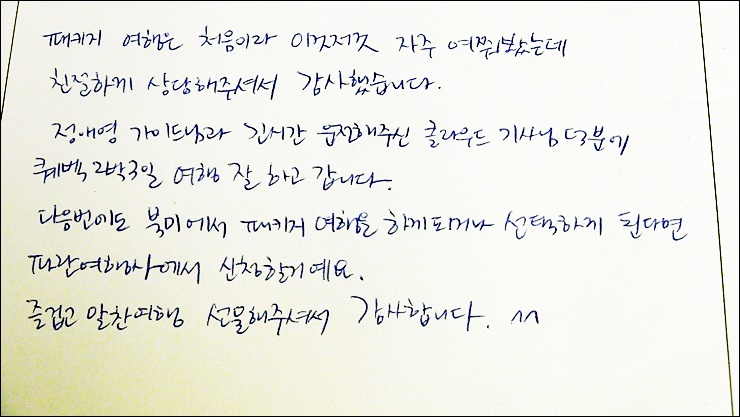 패키지 여행은 처음이라 이것저것 자주 여쭤봤는데
친절하게 상담해주셔서 감사했습니다.
정애영 가이드님과 긴시간 운전해주신 클라우드 기사님 덕분에
퀘벡 2박3일 여행 잘 하고 갑니다.
다음번에도 북미에서 패키지 여행을 하게되거나 선택하게 된다면
파란여행사에서 신청할거예요.
즐겁고 알찬여행 선물해주셔서 감사합니다. ^^